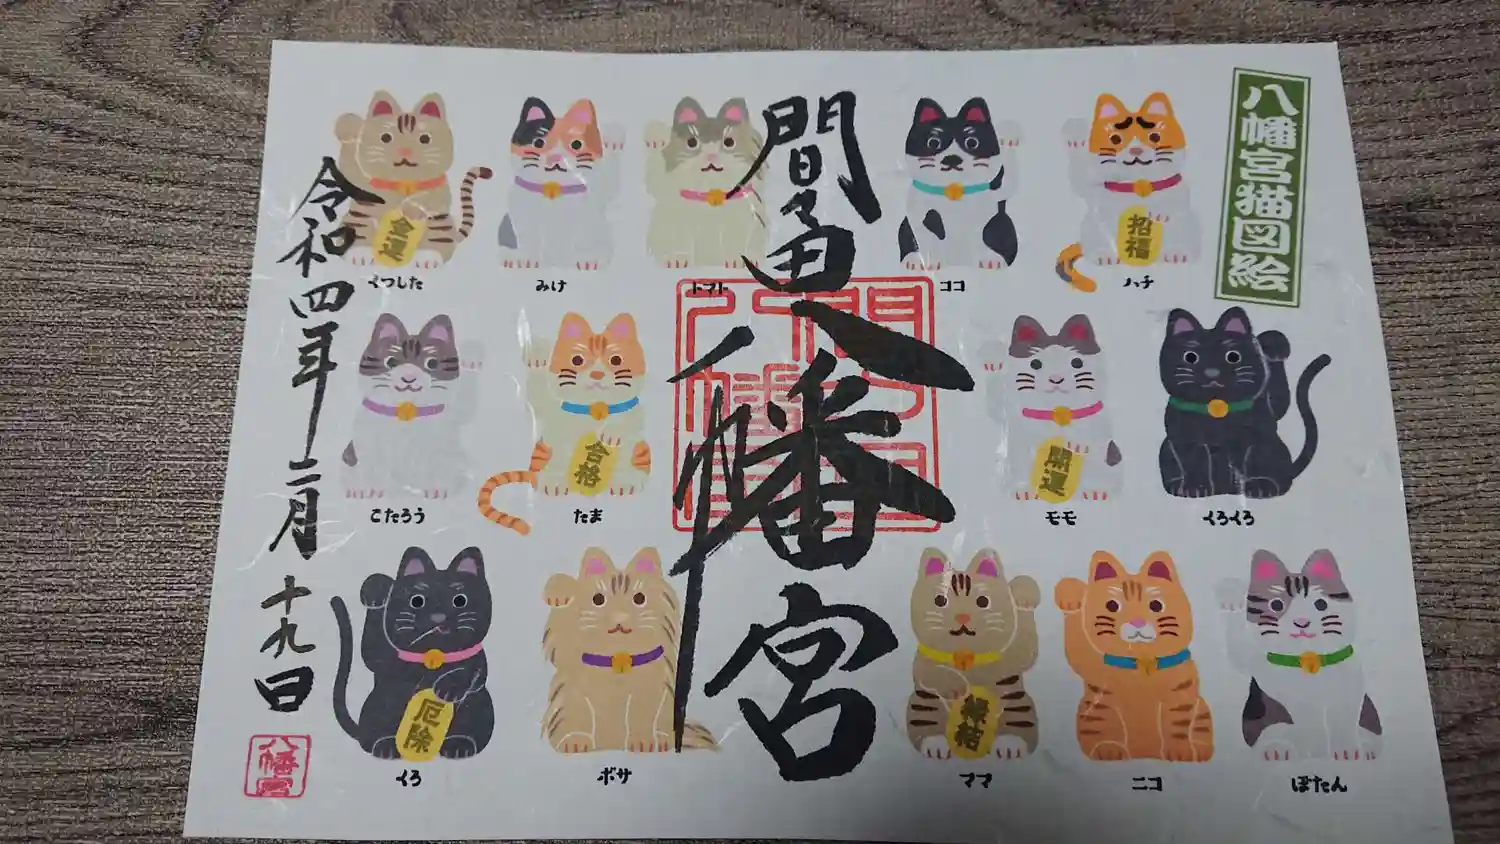 八幡宮猫図絵
間々田八幡宮
令和四年二月十九日
八幡宮
間々田八幡宮
金運
招福
くつした
みけ
トマト
ココ
ハチ
合格
開運
こたろう
たま
モモ
くろくろ
厄除
縁結
くろ
ボサ
ママ
ニコ
ぼたん